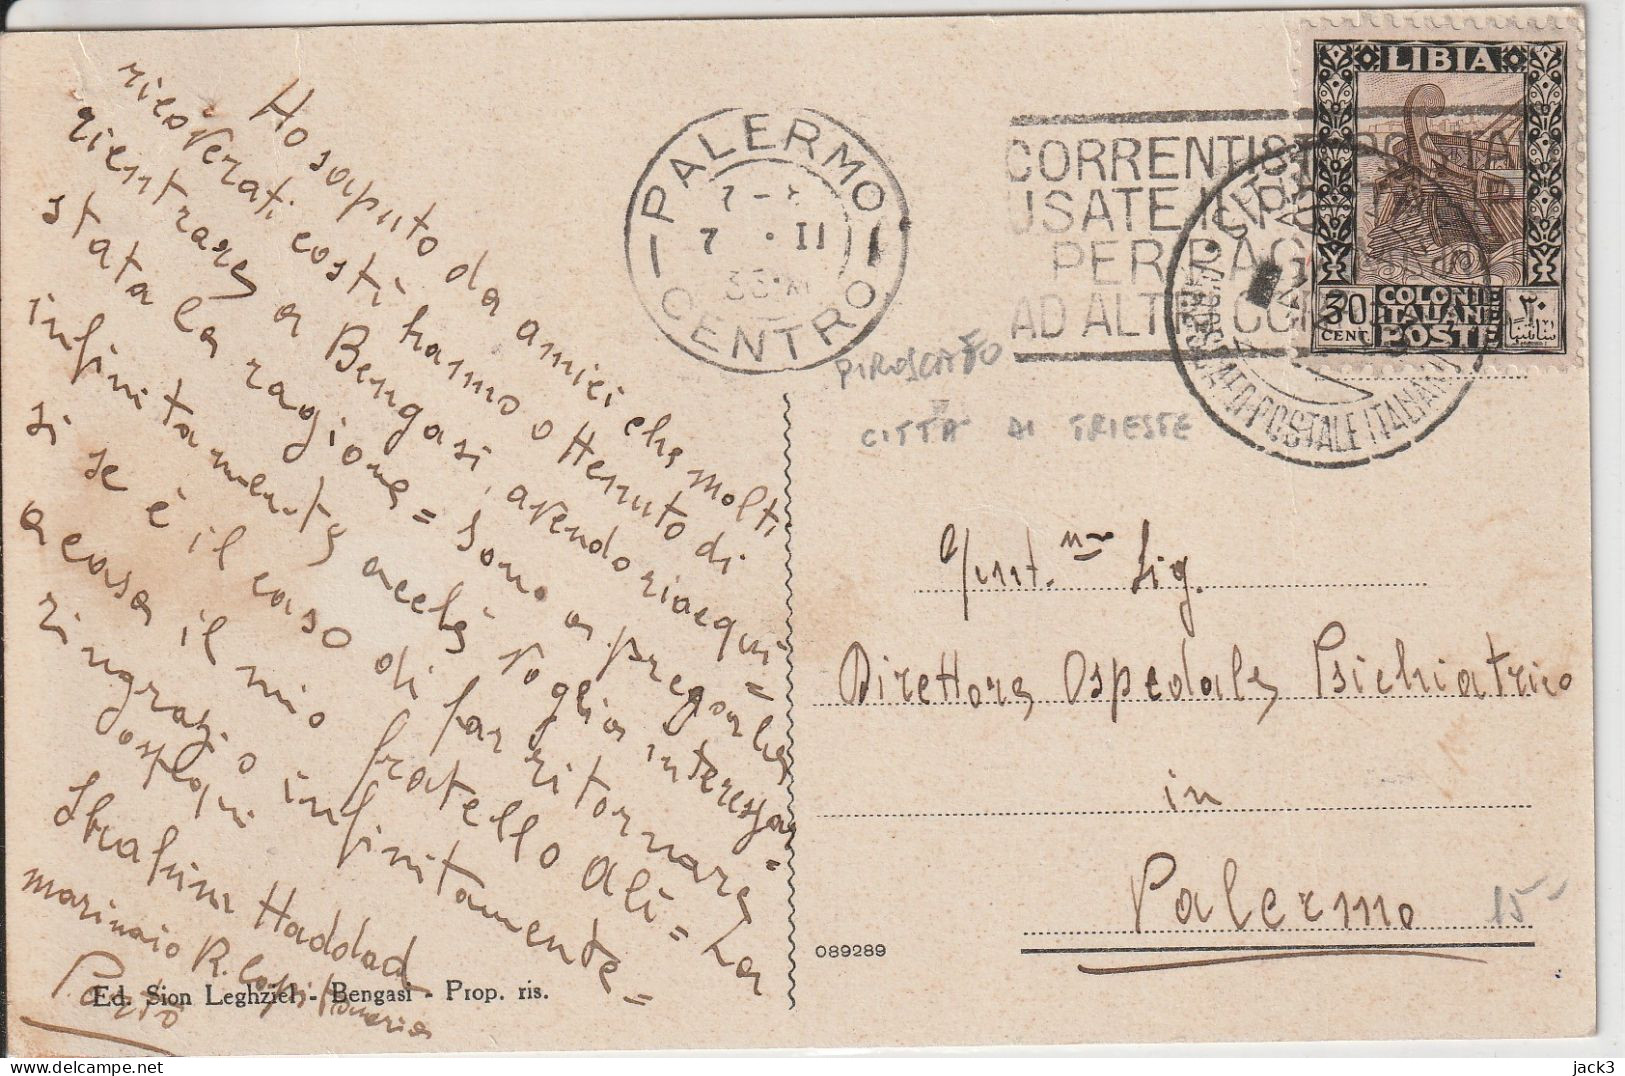 Ho saputo da amici che molti
ricoverati costì hanno ottenuto di
rientrare a Bengasi, avendo riacqui=
stata la ragione = Sono a pregarla
infinitamente acchè voglia interessar=
si se è il caso di far ritornare
a casa il mio fratello Alì = La
ringrazio infinitamente =
ossequi
Ibrahim Haddad
marinaio R. Capitaneria
Porto
Ed. Sion Leghziel - Bengasi - Prop. ris.
PALERMO
7 · II
CENTRO
CORRENTISTI POSTALI
USATE
PER PAG
AD ALTRI
LIBIA
30
CENT
COLONIE
ITALIANE
POSTE
٣٠
POSTALE ITALIANO
PIROSCAFO
CITTÀ DI TRIESTE
Sig.
Direttore Ospedale Psichiatrico
in
Palermo
15
089289
jack3